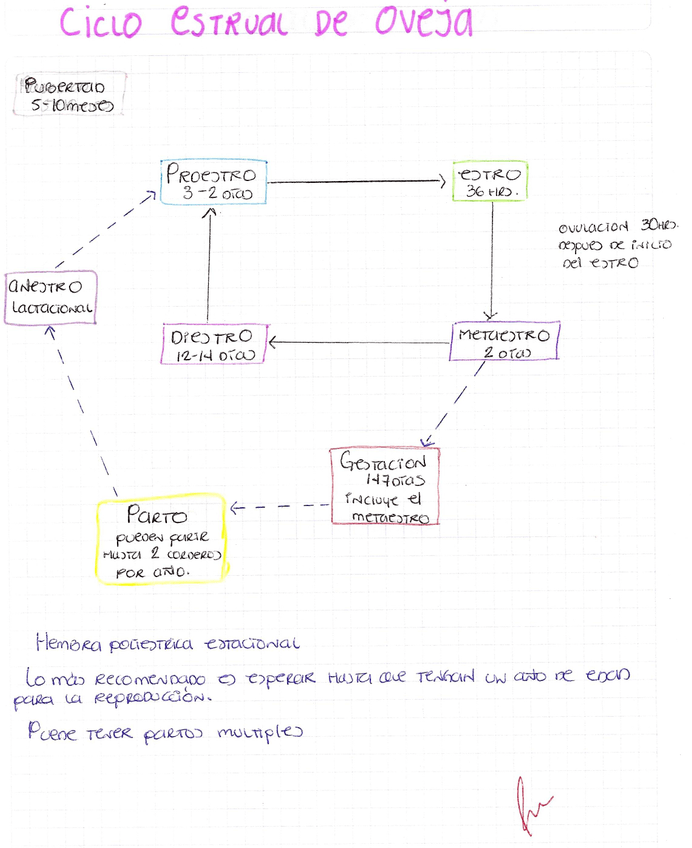 Ciclo estrual de oveja
Pubertad
5-10 meses
Proestro
3-2 días
estro
36 Hrs.
ovulacion 30 Hrs.
despues de inicio
del estro
anestro
Lactacional
Diestro
12-14 Días
Metaestro
2 días
Gestacion
147 días
incluye el
metaestro
Parto
pueden parir
Hasta 2 corderos
por año.
Hembra poliestrica estacional
Lo más recomendado es esperar Hasta que tengan un año de edad
para la reproducción.
Puede tener partos multiples